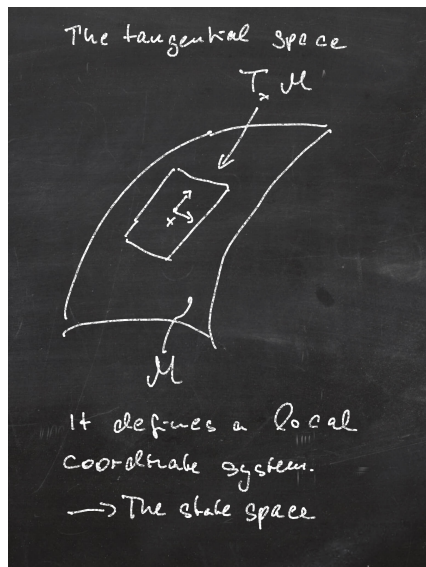 The tangential space
Tₓ M
x
M
It defines a local
coordinate system.
→ The state space